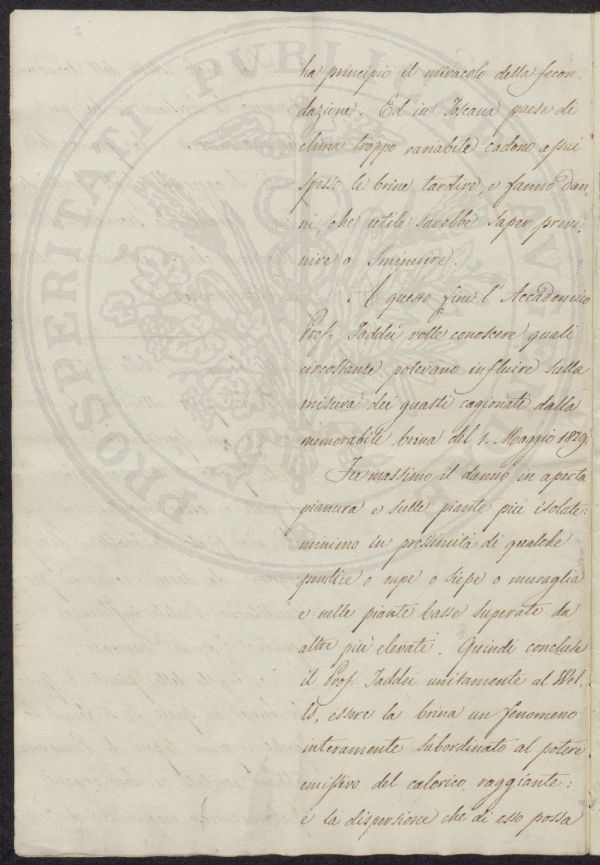 ha principio il miracolo della fecon-
dazione. Ed in Toscana paese di
clima troppo variabile cadono assai
spesso le brine tardive, e fanno dan-
ni, che utile sarebbe saper preve-
nire o sminuire.
A questo fine l'Accademico
Prof: Taddei volle conoscere quali
circostanze potevano influire sulla
misura dei guasti cagionati dalla
memorabile brina del 1. Maggio 1829
Fu massimo il danno in aperta
pianura e sulle piante più isolate:
minimo in prossimità di qualche
pendice o rupe o siepe o muraglia
e nelle piante basse superate da
altre più elevate. Quindi concluse
il Prof. Taddei unitamente al Wel-
ls, essere la brina un fenomeno
interamente subordinato al potere
emissivo del calorico raggiante:
e la dispersione che di esso possa
PROSPERITATI PUBLICAE